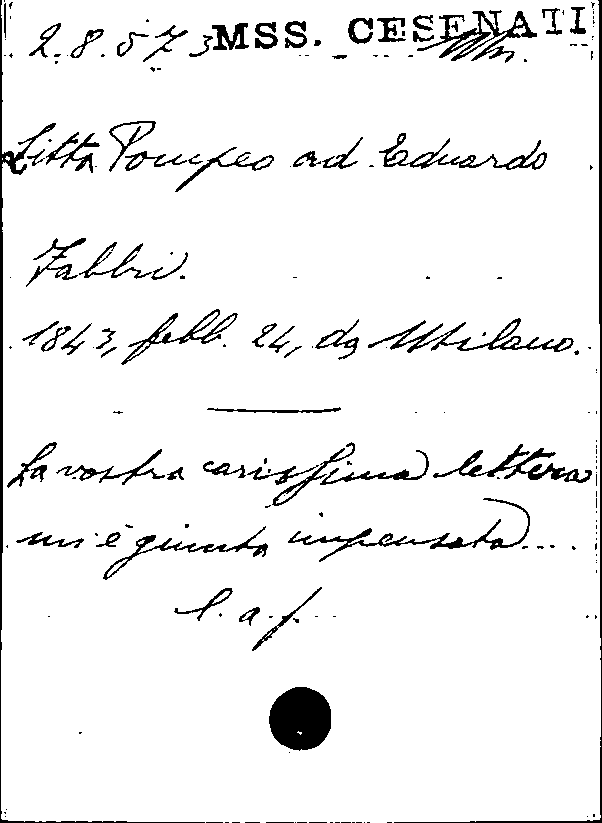 2.8.573 MSS. CESENATI
Litta Pompeo ad Eduardo
Fabbri.
1843, febb. 24, da Milano.
La vostra carissima lettera
mi è giunta impensata....
l. a. f.